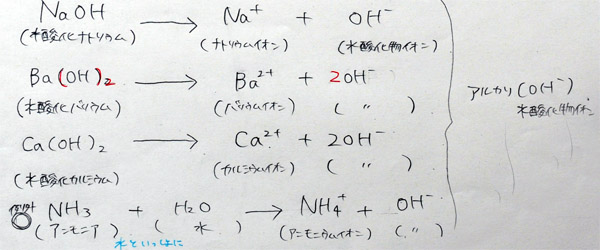 NaOH → Na⁺ + OH⁻
(水酸化ナトリウム) (ナトリウムイオン) (水酸化物イオン)
Ba(OH)₂ → Ba²⁺ + 2OH⁻
(水酸化バリウム) (バリウムイオン) ( 〃 )
アルカリ(OH⁻)
水酸化物イオン
Ca(OH)₂ → Ca²⁺ + 2OH⁻
(水酸化カルシウム) (カルシウムイオン) ( 〃 )
NH₃ + H₂O → NH₄⁺ + OH⁻
(アンモニア) ( 水 ) (アンモニウムイオン) ( 〃 )
水といっしょに